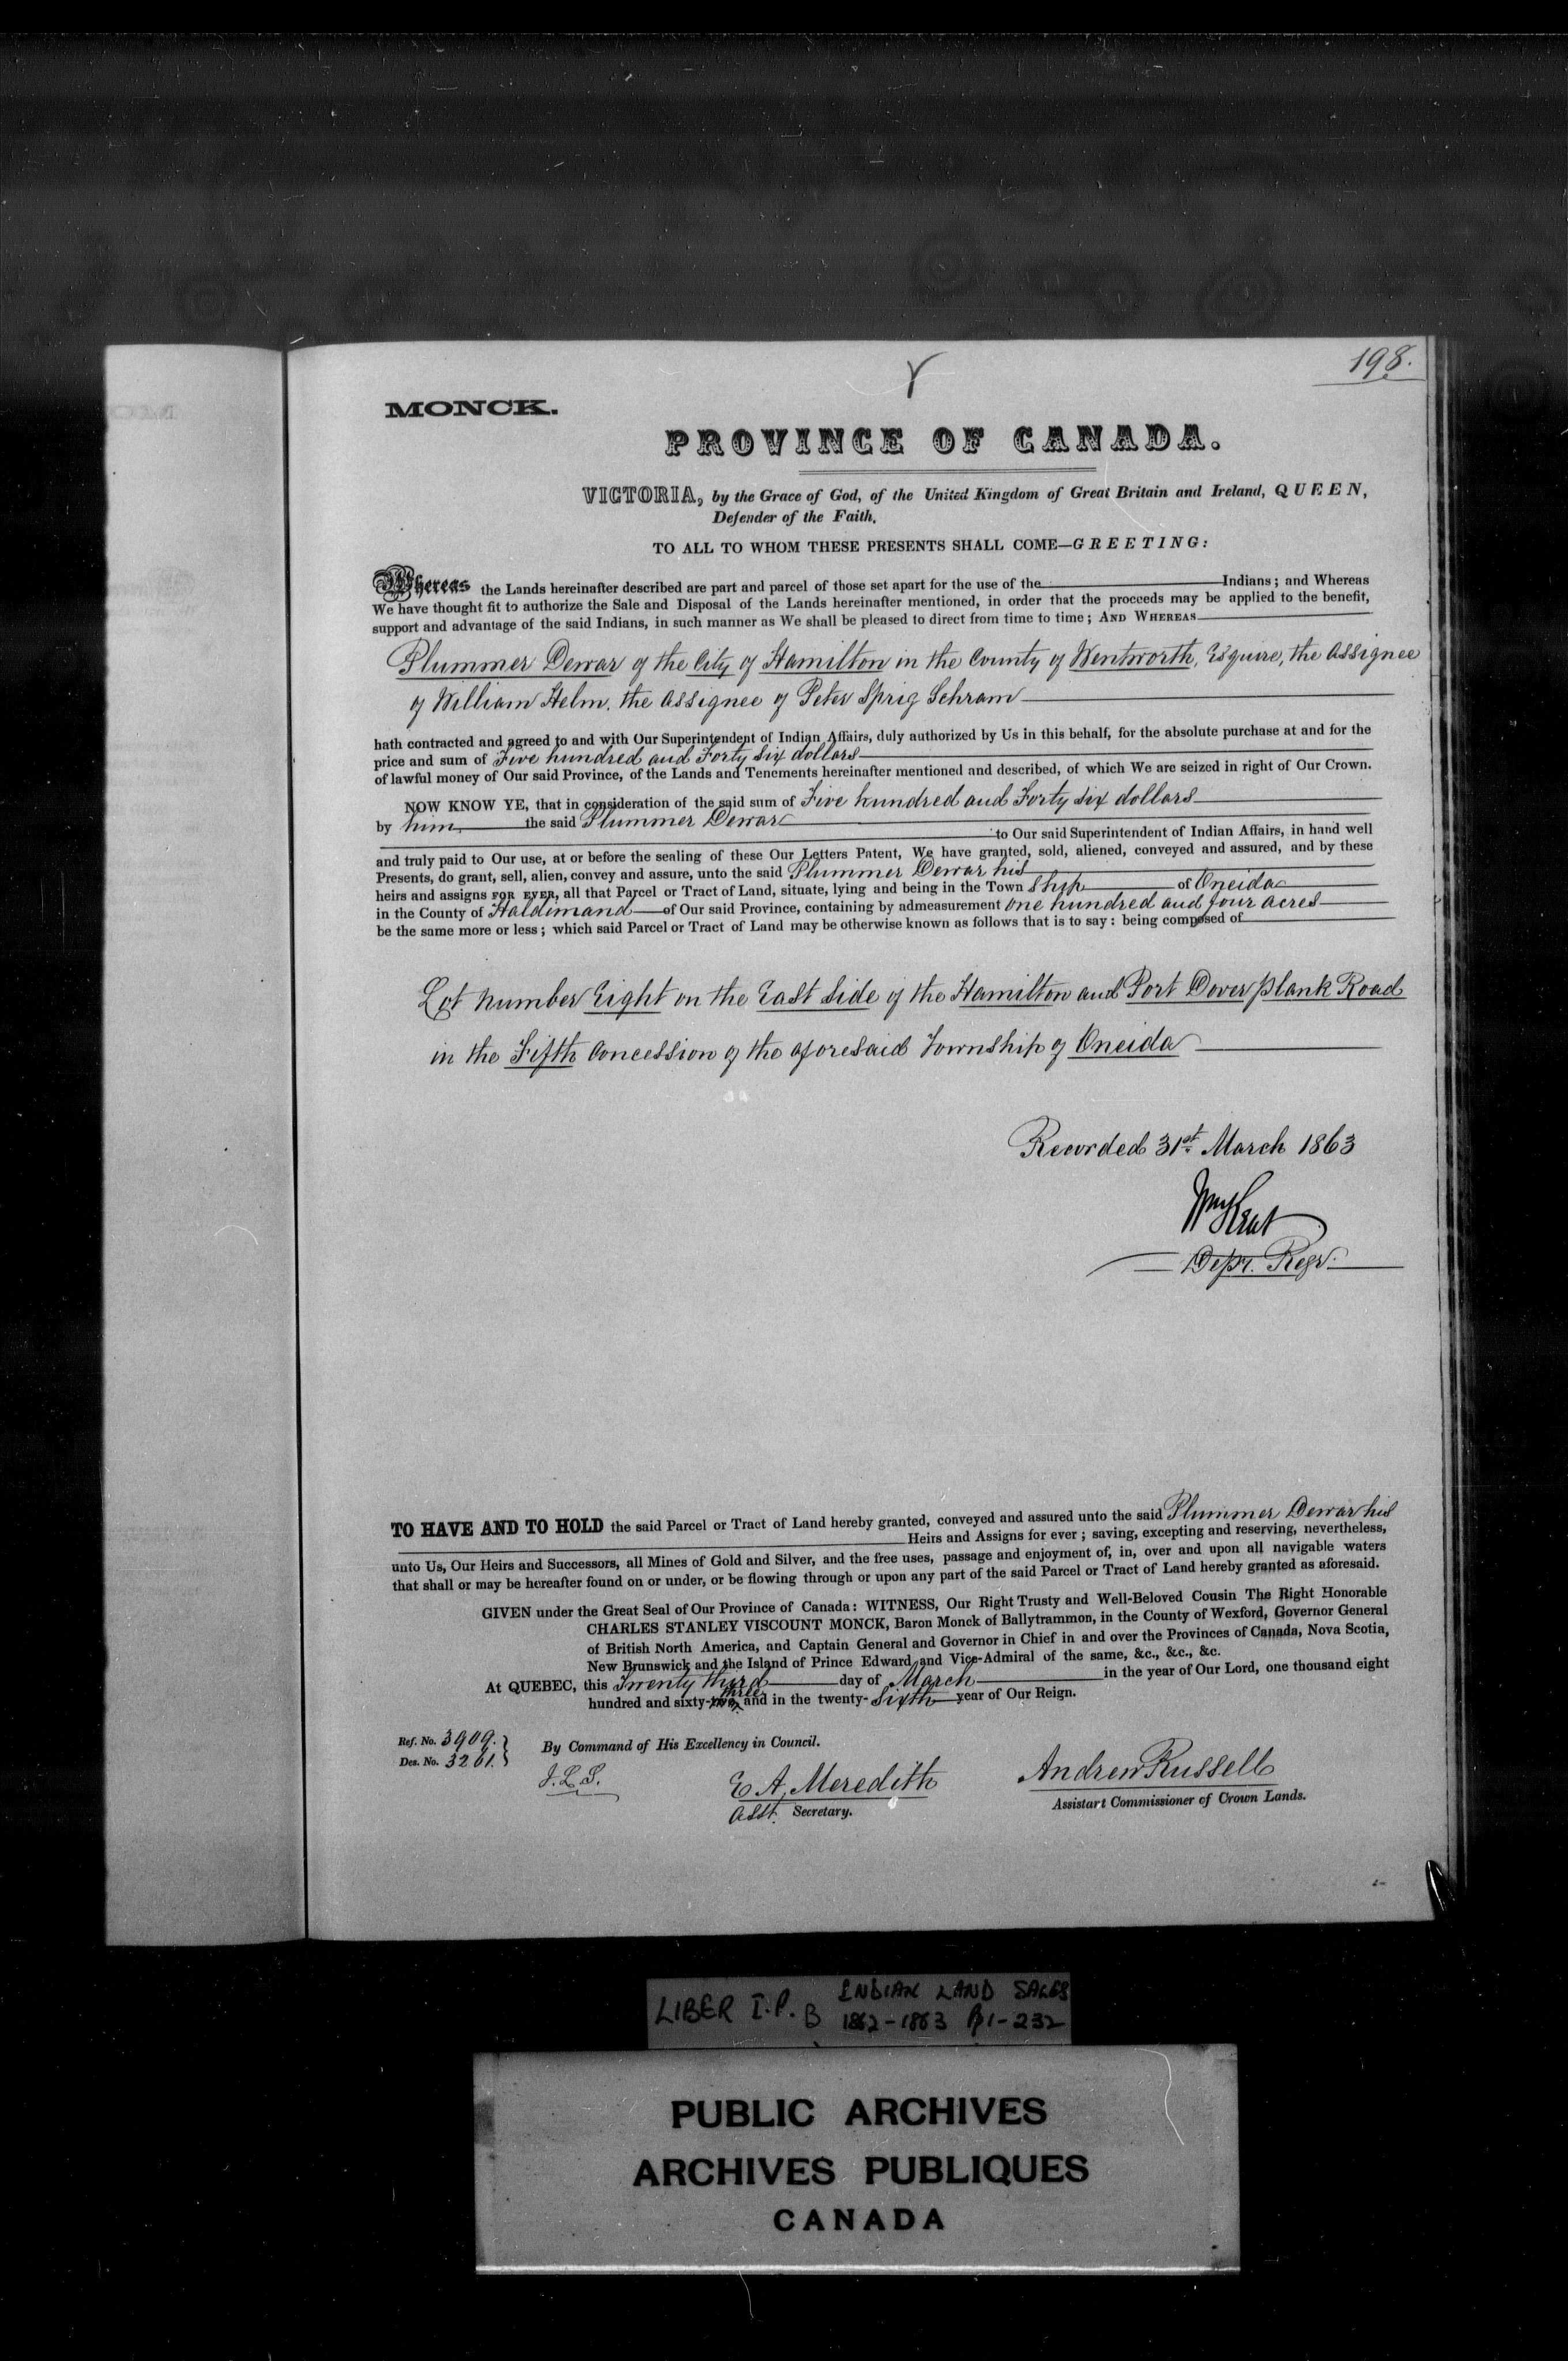 198.
MONCK.
PROVINCE OF CANADA.
VICTORIA, by the Grace of God, of the United Kingdom of Great Britain and Ireland, QUEEN,
Defender of the Faith,
TO ALL TO WHOM THESE PRESENTS SHALL COME—GREETING:
Whereas the Lands hereinafter described are part and parcel of those set apart for the use of the Indians; and Whereas
We have thought fit to authorize the Sale and Disposal of the Lands hereinafter mentioned, in order that the proceeds may be applied to the benefit,
support and advantage of the said Indians, in such manner as We shall be pleased to direct from time to time; AND WHEREAS
Plummer Dewar of the City of Hamilton in the County of Wentworth, Esquire, the Assignee
of William Helm, the Assignee of Peter Sprig Schram
hath contracted and agreed to and with Our Superintendent of Indian Affairs, duly authorized by Us in this behalf, for the absolute purchase at and for the
price and sum of Five hundred and Forty six dollars
of lawful money of Our said Province, of the Lands and Tenements hereinafter mentioned and described, of which We are seized in right of Our Crown.
NOW KNOW YE, that in consideration of the said sum of Five hundred and Forty six dollars
by him the said Plummer Dewar
to Our said Superintendent of Indian Affairs, in hand well
and truly paid to Our use, at or before the sealing of these Our Letters Patent, We have granted, sold, aliened, conveyed and assured, and by these
Presents, do grant, sell, alien, convey and assure, unto the said Plummer Dewar his
heirs and assigns FOR EVER, all that Parcel or Tract of Land, situate, lying and being in the Town ship of Oneida
in the County of Haldimand of Our said Province, containing by admeasurement one hundred and four acres
be the same more or less; which said Parcel or Tract of Land may be otherwise known as follows that is to say: being composed of
Lot number Eight on the East side of the Hamilton and Port Dover plank Road
in the Fifth Concession of the aforesaid Township of Oneida
Recorded 31st March 1863
Wm Kent
Depy. Regr.
TO HAVE AND TO HOLD the said Parcel or Tract of Land hereby granted, conveyed and assured unto the said Plummer Dewar his
Heirs and Assigns for ever; saving, excepting and reserving, nevertheless,
unto Us, Our Heirs and Successors, all Mines of Gold and Silver, and the free uses, passage and enjoyment of, in, over and upon all navigable waters
that shall or may be hereafter found on or under, or be flowing through or upon any part of the said Parcel or Tract of Land hereby granted as aforesaid.
GIVEN under the Great Seal of Our Province of Canada: WITNESS, Our Right Trusty and Well-Beloved Cousin The Right Honorable
CHARLES STANLEY VISCOUNT MONCK, Baron Monck of Ballytrammon, in the County of Wexford, Governor General
of British North America, and Captain General and Governor in Chief in and over the Provinces of Canada, Nova Scotia,
New Brunswick and the Island of Prince Edward and Vice-Admiral of the same, &c., &c., &c.
At QUEBEC, this Twenty third day of March in the year of Our Lord, one thousand eight
hundred and sixty-two three and in the twenty-sixth year of Our Reign.
Ref. No. 3909.
Des. No. 3261.
By Command of His Excellency in Council.
J.L.S.
E A Meredith
Asst. Secretary.
Andrew Russell
Assistart Commissioner of Crown Lands.
LIBER I.P. B INDIAN LAND SALES
1862-1863 P1-232
PUBLIC ARCHIVES
ARCHIVES PUBLIQUES
CANADA